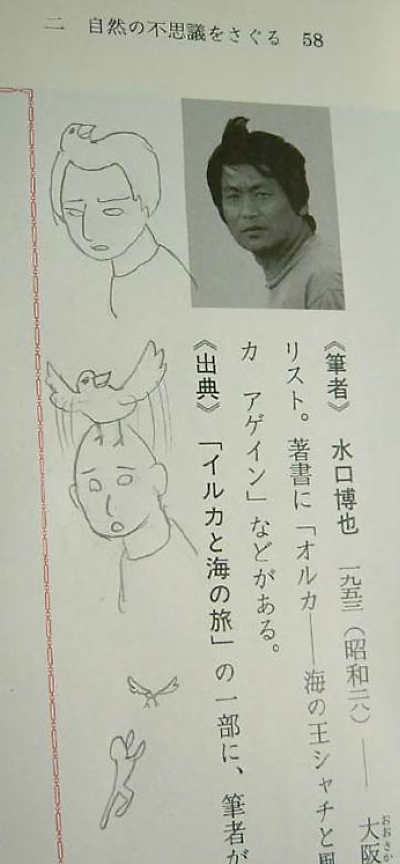 二　自然の不思議をさぐる　58
《筆者》　水口博也　一九五三（昭和二八）――　大阪
おおさか
リスト。著書に「オルカ――海の王シャチと風
カ　アゲイン」などがある。
《出典》　「イルカと海の旅」の一部に、筆者が